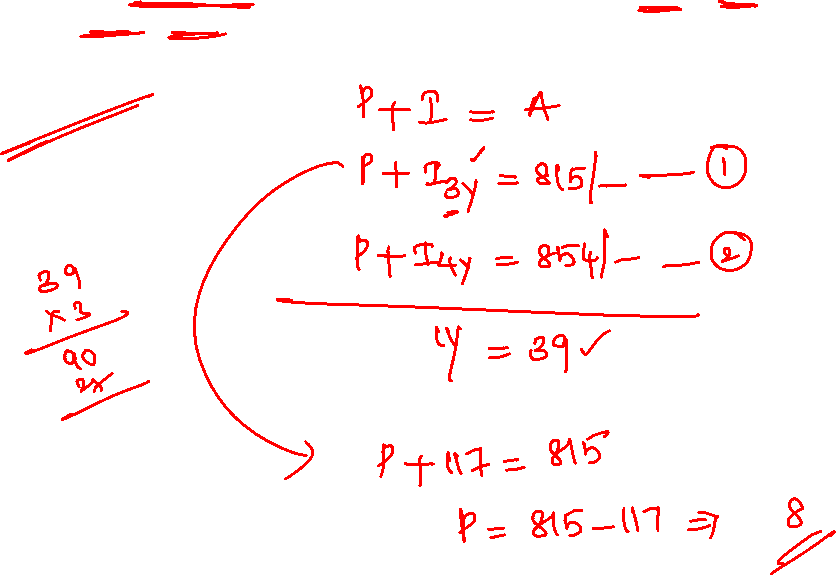 P + I = A
P + I3y ✓ = 815/- — ①
P + I4y = 854/- — ②
1y = 39 ✓
39
x 3
90
P + 117 = 815
P = 815 - 117 ⇒ 8